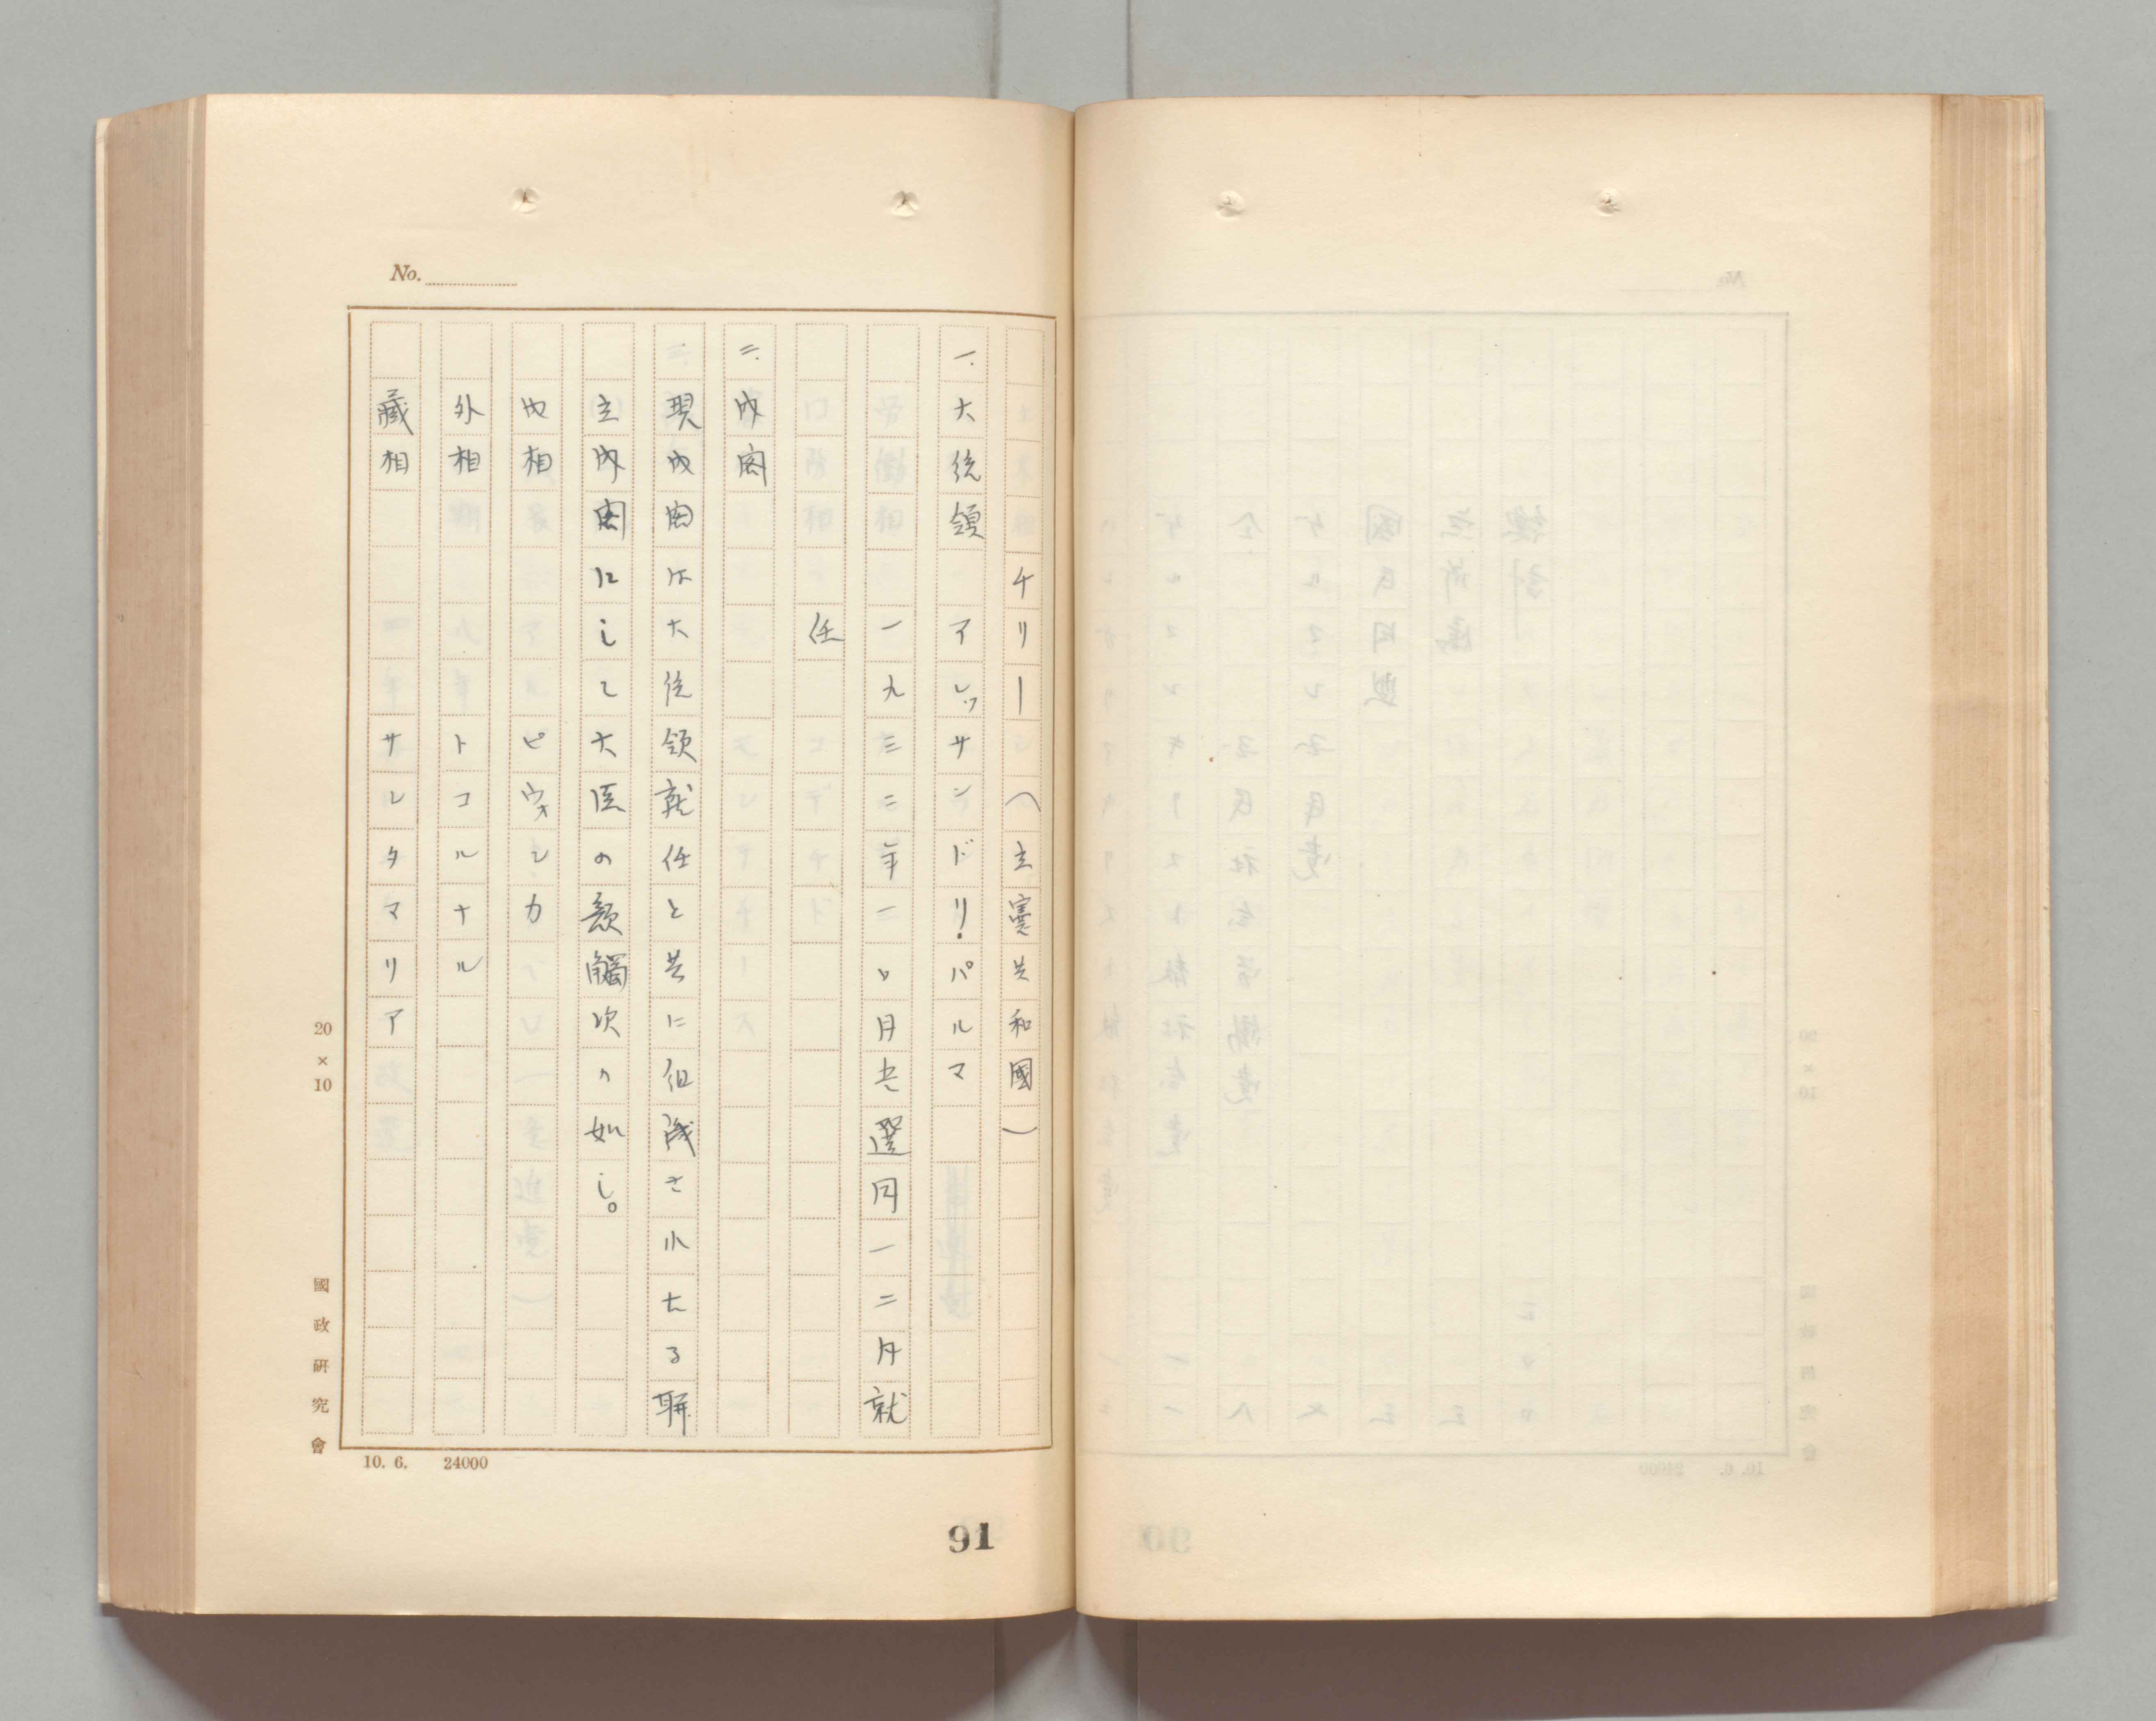 No.
チリー（立憲共和國）
一.大統領　アレッサンドリ!パルマ
一九三二年一〇月當選同一二月就
任
二.内閣
現内閣は大統領就任と共に組織されたる聯
立内閣にして大臣の顔觸次の如し。
内相　ピウォレカ
外相　トコルナル
藏相　サレタマリア
20×10
國政研究會
10. 6.　24000
91